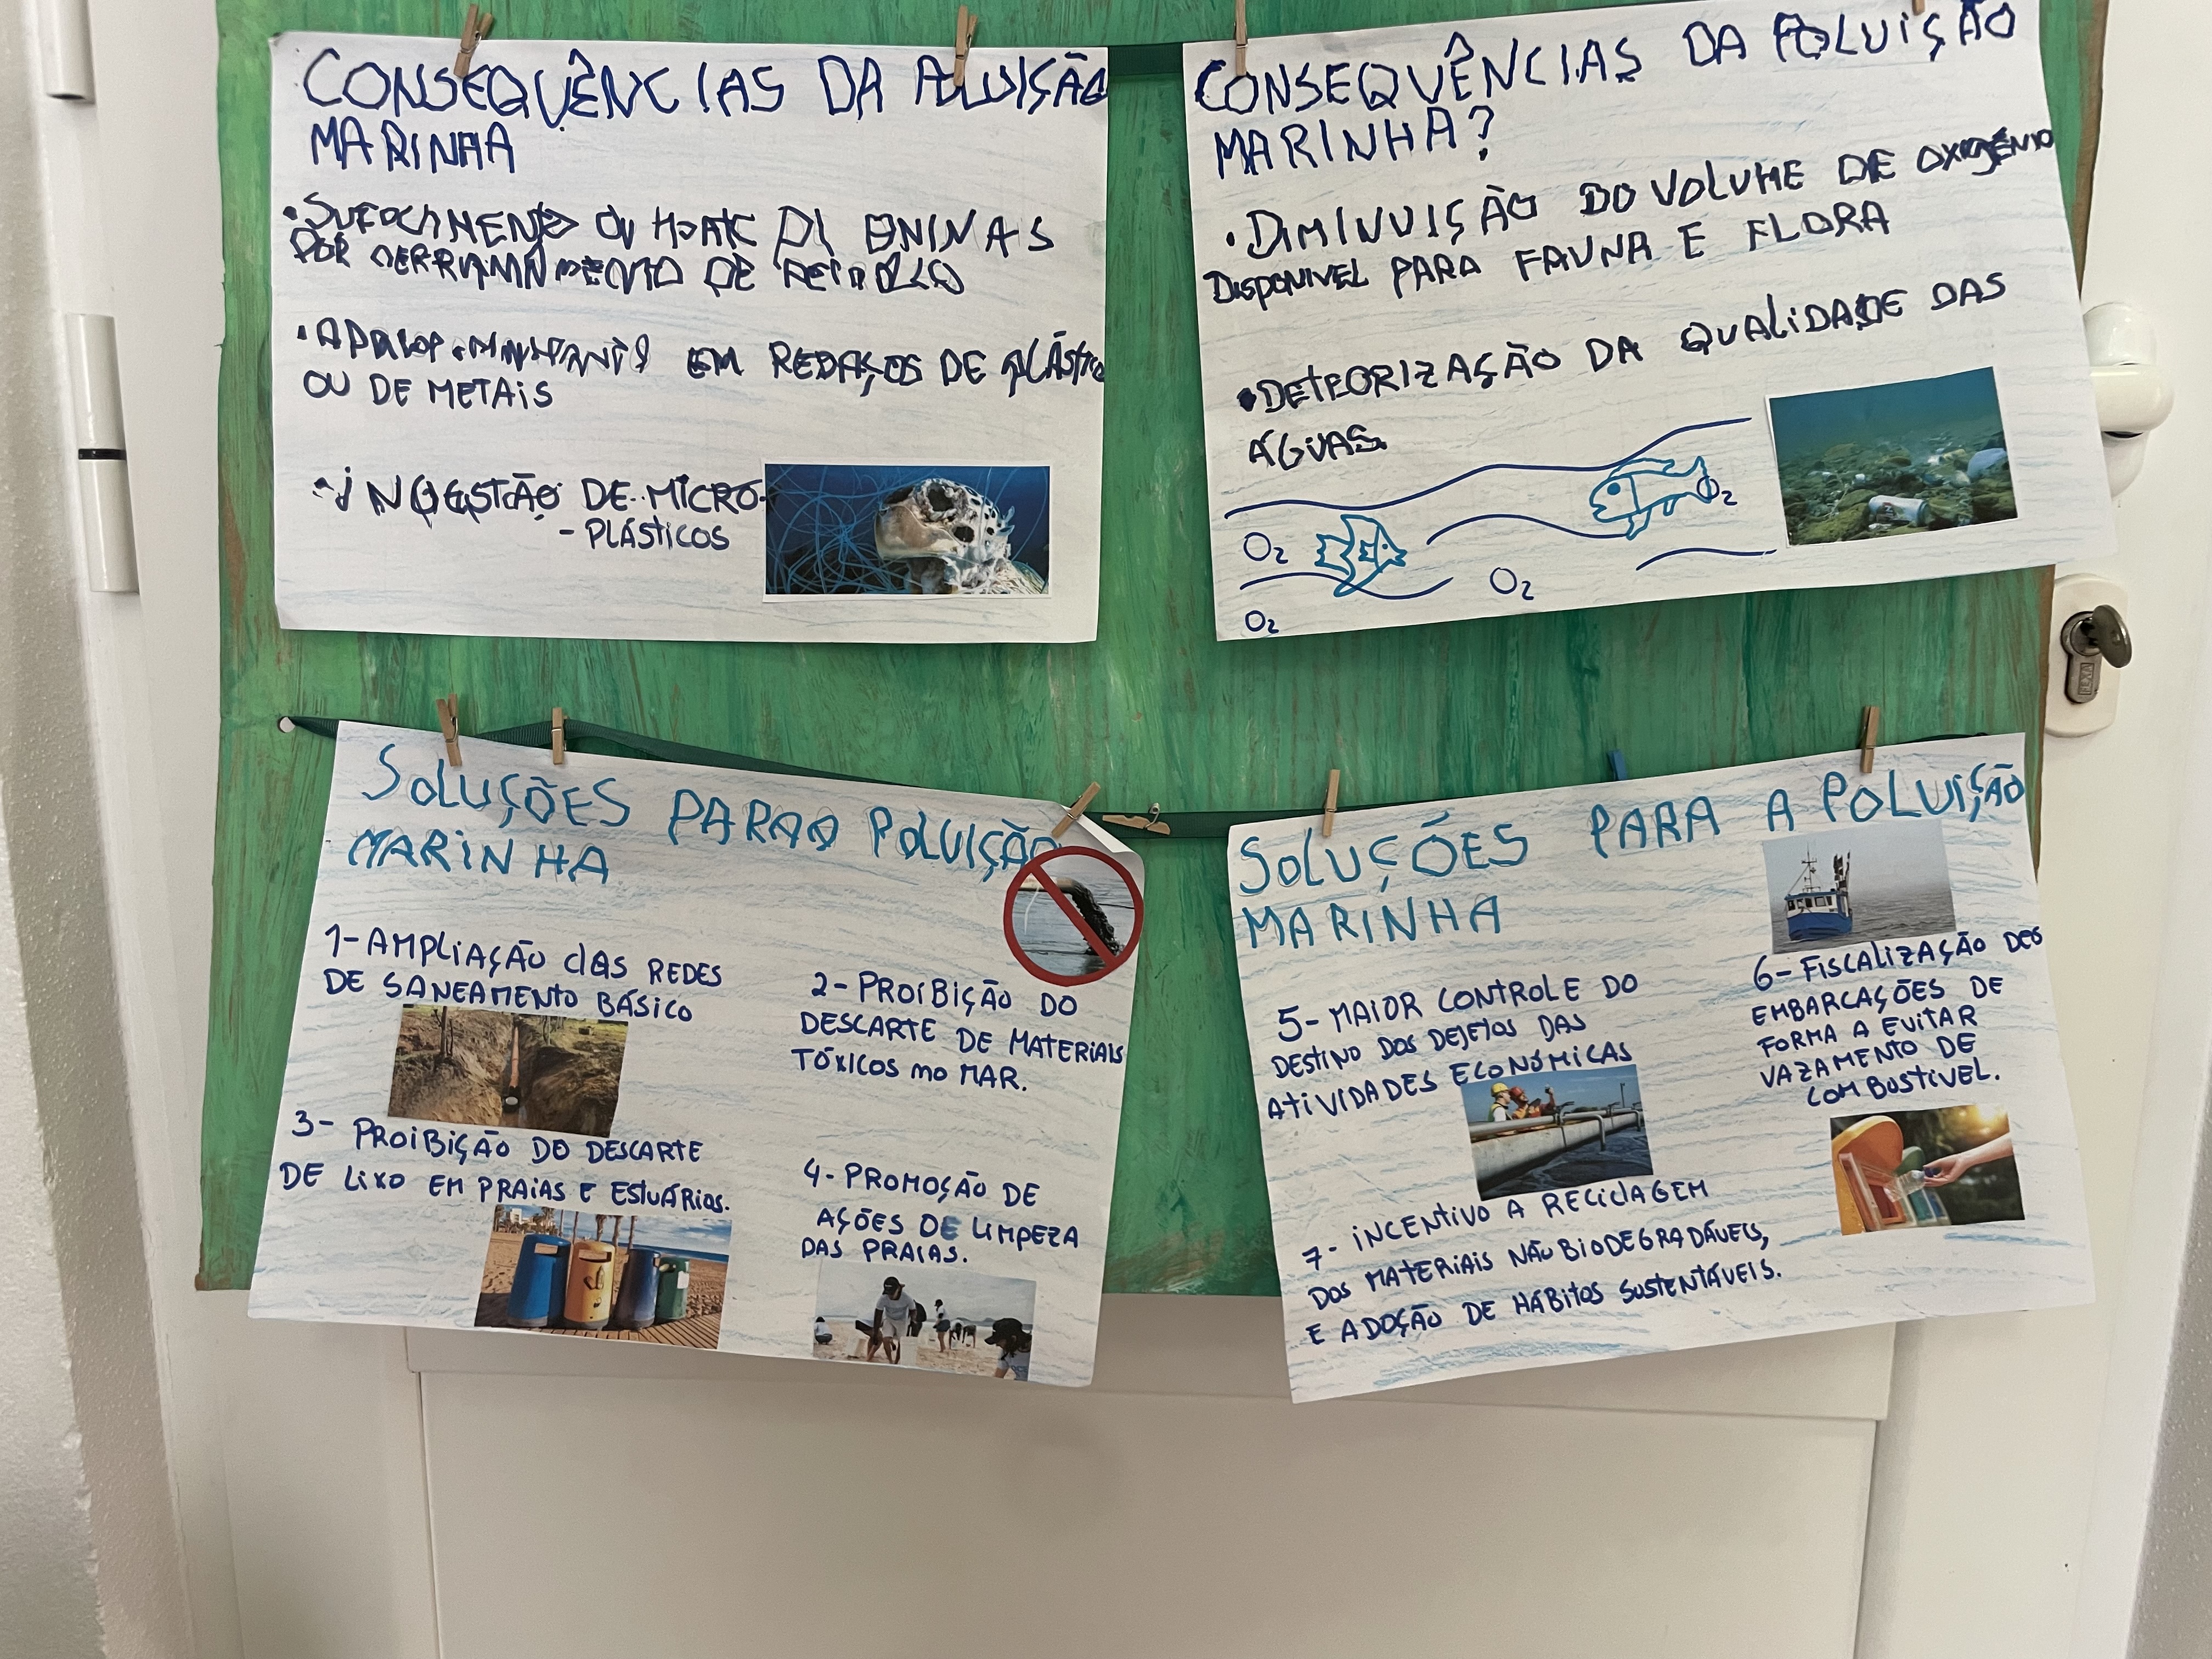 CONSEQUÊNCIAS DA POLUIÇÃO
MARINHA
• SUFOCAMENTO OU
POR DE
• EM REDAÇOS DE PLÁSTICO
OU DE METAIS
• INGESTÃO DE MICRO-
- PLÁSTICOS
CONSEQUÊNCIAS DA POLUIÇÃO
MARINHA?
• DIMINUIÇÃO DO VOLUME DE OXIGÉNIO
DISPONIVEL PARA FAUNA E FLORA
• DETEORIZAÇÃO DA QUALIDADE DAS
ÁGUAS.
O2
O2
O2
O2
SOLUÇÕES PARA A POLUIÇÃO
MARINHA
1- AMPLIAÇÃO dAS REDES
DE SANEAMENTO BÁSICO
2- PROIBIÇÃO DO
DESCARTE DE MATERIAIS
TÓXICOS no MAR.
3- PROIBIÇÃO DO DESCARTE
DE LIXO EM PRAIAS E ESTUÁRIOS.
4- PROMOÇÃO DE
AÇÕES DE LIMPEZA
DAS PRAIAS.
SOLUÇÕES PARA A POLUIÇÃO
MARINHA
5- MAIOR CONTROLE DO
DESTINO DOS DEJETOS DAS
ATIVIDADES ECONÓMICAS
6- FISCALIZAÇÃO DES
EMBARCAÇÕES DE
FORMA A EVITAR
VAZAMENTO DE
COMBUSTIVEL.
7- INCENTIVO A RECICLAGEM
DOS MATERIAIS NÃO BIODEGRADÁVEIS,
E ADOÇÃO DE HÁBITOS SUSTENTÁVEIS.